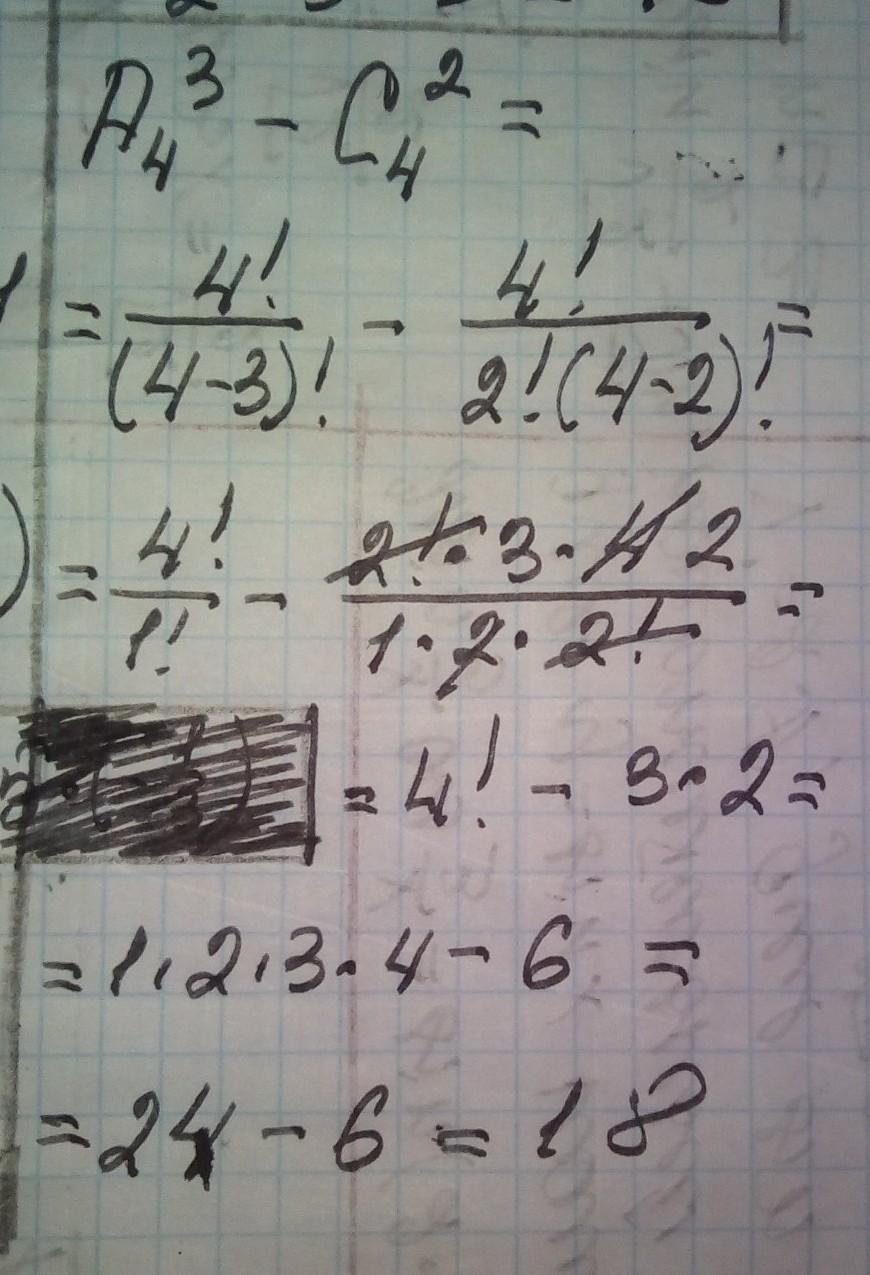 A₄³ - C₄² =
= 4!/(4-3)! - 4!/2!(4-2)! =
= 4!/1! - 2!·3·4 2/1·2·2! =
= 4! - 3·2 =
= 1·2·3·4 - 6 =
= 24 - 6 = 18